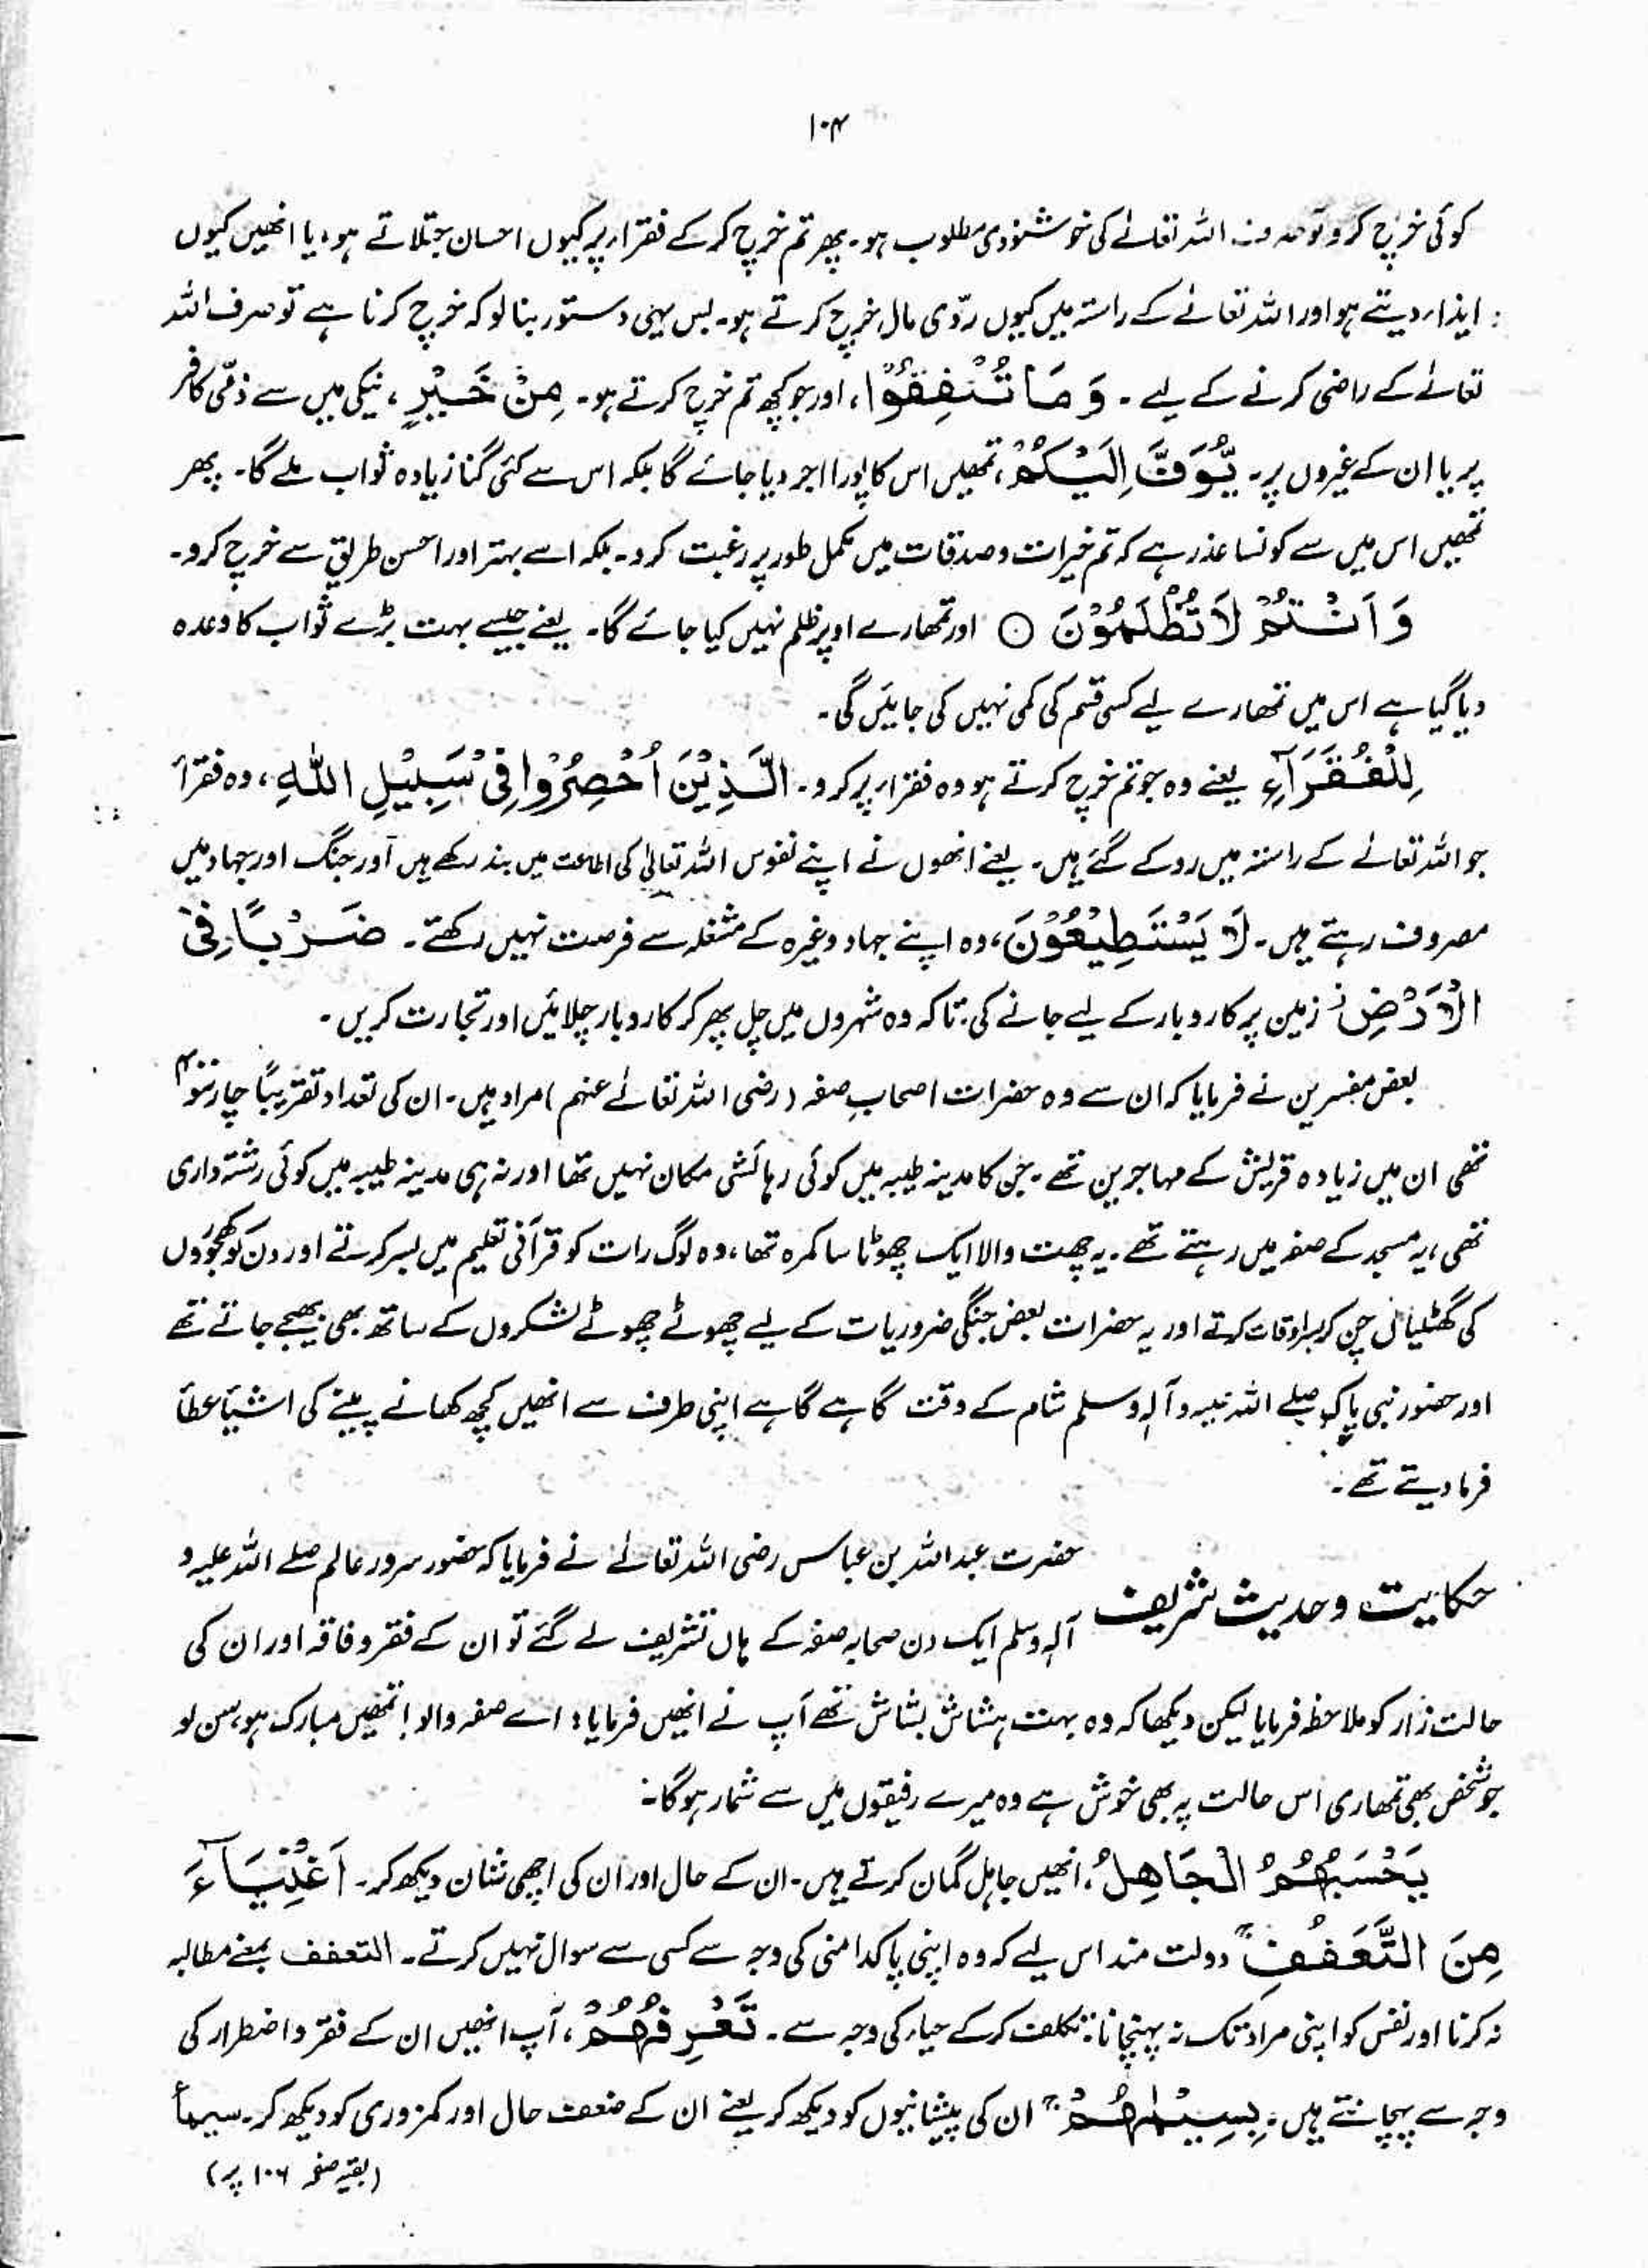 ۱۰۴
کوئی خرچ کرو تو صرف اللہ تعالےٰ کی خوشنودی مطلوب ہو۔ پھر تم خرچ کر کے فقراء پر کیوں احسان جتلاتے ہو، یا انھیں کیوں
ایذاء دیتے ہو اور اللہ تعالےٰ کے راستہ میں کیوں ردّی مال خرچ کرتے ہو۔ بس یہی دستور بنا لو کہ خرچ کرنا ہے تو صرف اللہ
تعالےٰ کے راضی کرنے کے لیے ۔ وَ مَا تُنْفِقُوْا، اور جو کچھ تم خرچ کرتے ہو۔ مِنْ خَيْرٍ ، نیکی میں سے ذمّی کافر
پر یا ان کے غیروں پر۔ يُّوَفَّ اِلَيْكُمْ، تمھیں اس کا پورا اجر دیا جائے گا بلکہ اس سے کئی گنا زیادہ ثواب ملے گا۔ پھر
تمھیں اس میں سے کونسا عذر ہے کہ تم خیرات و صدقات میں مکمل طور پر رغبت کرو۔ بلکہ اسے بہتر اور احسن طریق سے خرچ کرو۔
وَ اَنْتُمْ لَا تُظْلَمُوْنَ ○ اور تمھارے اوپر ظلم نہیں کیا جائے گا۔ یعنے جیسے بہت بڑے ثواب کا وعدہ
دیا گیا ہے اس میں تمھارے لیے کسی قسم کی کمی نہیں کی جائیں گی۔
لِلْفُقَرَآءِ یعنے وہ جو تم خرچ کرتے ہو وہ فقراء پر کرو۔ الَّذِيْنَ اُحْصِرُوْا فِيْ سَبِيْلِ اللّٰهِ ، وہ فقرأ
جو اللہ تعالےٰ کے راستہ میں روکے گئے ہیں۔ یعنے انھوں نے اپنے نفوس اللہ تعالیٰ کی اطاعت میں بند رکھے ہیں اور جنگ اور جہاد میں
مصروف رہتے ہیں۔ لَا يَسْتَطِيْعُوْنَ، وہ اپنے جہاد وغیرہ کے مشغلہ سے فرصت نہیں رکھتے ۔ ضَرْبًا فِي
الْاَرْضِ زمین پر کاروبار کے لیے جانے کی، تاکہ وہ شہروں میں چل پھر کر کاروبار چلائیں اور تجارت کریں ۔
بعض مفسرین نے فرمایا کہ ان سے وہ حضرات اصحابِ صفہ (رضی اللہ تعالےٰ عنہم) مراد ہیں۔ ان کی تعداد تقریباً چار سو ۴۰۰
تھی ان میں زیادہ قریش کے مہاجرین تھے ۔ جن کا مدینہ طیبہ میں کوئی رہائشی مکان نہیں تھا اور نہ ہی مدینہ طیبہ میں کوئی رشتہ داری
تھی، یہ مسجد کے صفہ میں رہتے تھے ۔ یہ چھت والا ایک چھوٹا سا کمرہ تھا، وہ لوگ رات کو قرآنی تعلیم میں بسر کرتے اور دن کو کھجوروں
کی گھٹلیاں چن کر بسر اوقات کرتے اور یہ حضرات بعض جنگی ضروریات کے لیے چھوٹے چھوٹے لشکروں کے ساتھ بھی بھیجے جاتے تھے
اور حضور نبی پاک صلے اللہ علیہ وآلہ وسلم شام کے وقت گاہے گاہے اپنی طرف سے انھیں کچھ کھانے پینے کی اشیأ عطأ
فرما دیتے تھے ۔
حکایت و حدیث شریف حضرت عبداللہ بن عباس رضی اللہ تعالےٰ نے فرمایا کہ حضور سرور عالم صلے اللہ علیہ و
آلہ وسلم ایک دن صحابہ صفہ کے ہاں تشریف لے گئے تو ان کے فقر و فاقہ اور ان کی
حالت زار کو ملاحظہ فرمایا لیکن دیکھا کہ وہ بہت ہشاش بشاش تھے آپ نے انھیں فرمایا: اے صفہ والو! تمھیں مبارک ہو، سن لو
جو شخص بھی تمھاری اس حالت پہ بھی خوش ہے وہ میرے رفیقوں میں سے شمار ہوگا۔
يَحْسَبُهُمُ الْجَاهِلُ، انھیں جاہل گمان کرتے ہیں۔ ان کے حال اور ان کی اچھی شان دیکھ کر۔ اَغْنِيَآءَ
مِنَ التَّعَفُّفِ دولت مند اس لیے کہ وہ اپنی پاکدامنی کی وجہ سے کسی سے سوال نہیں کرتے ۔ التعفف بمعنے مطالبہ
نہ کرنا اور نفس کو اپنی مراد تک نہ پہنچانا تکلف کر کے حیاء کی وجہ سے ۔ تَعْرِفُهُمْ ، آپ انھیں ان کے فقر و اضطرار کی
وجہ سے پہچانتے ہیں۔ بِسِيْمٰهُمْ ان کی پیشانیوں کو دیکھ کر یعنے ان کے ضعف حال اور کمزوری کو دیکھ کر۔ سیمأ
(بقیہ صفحہ ۱۰۶ پر)